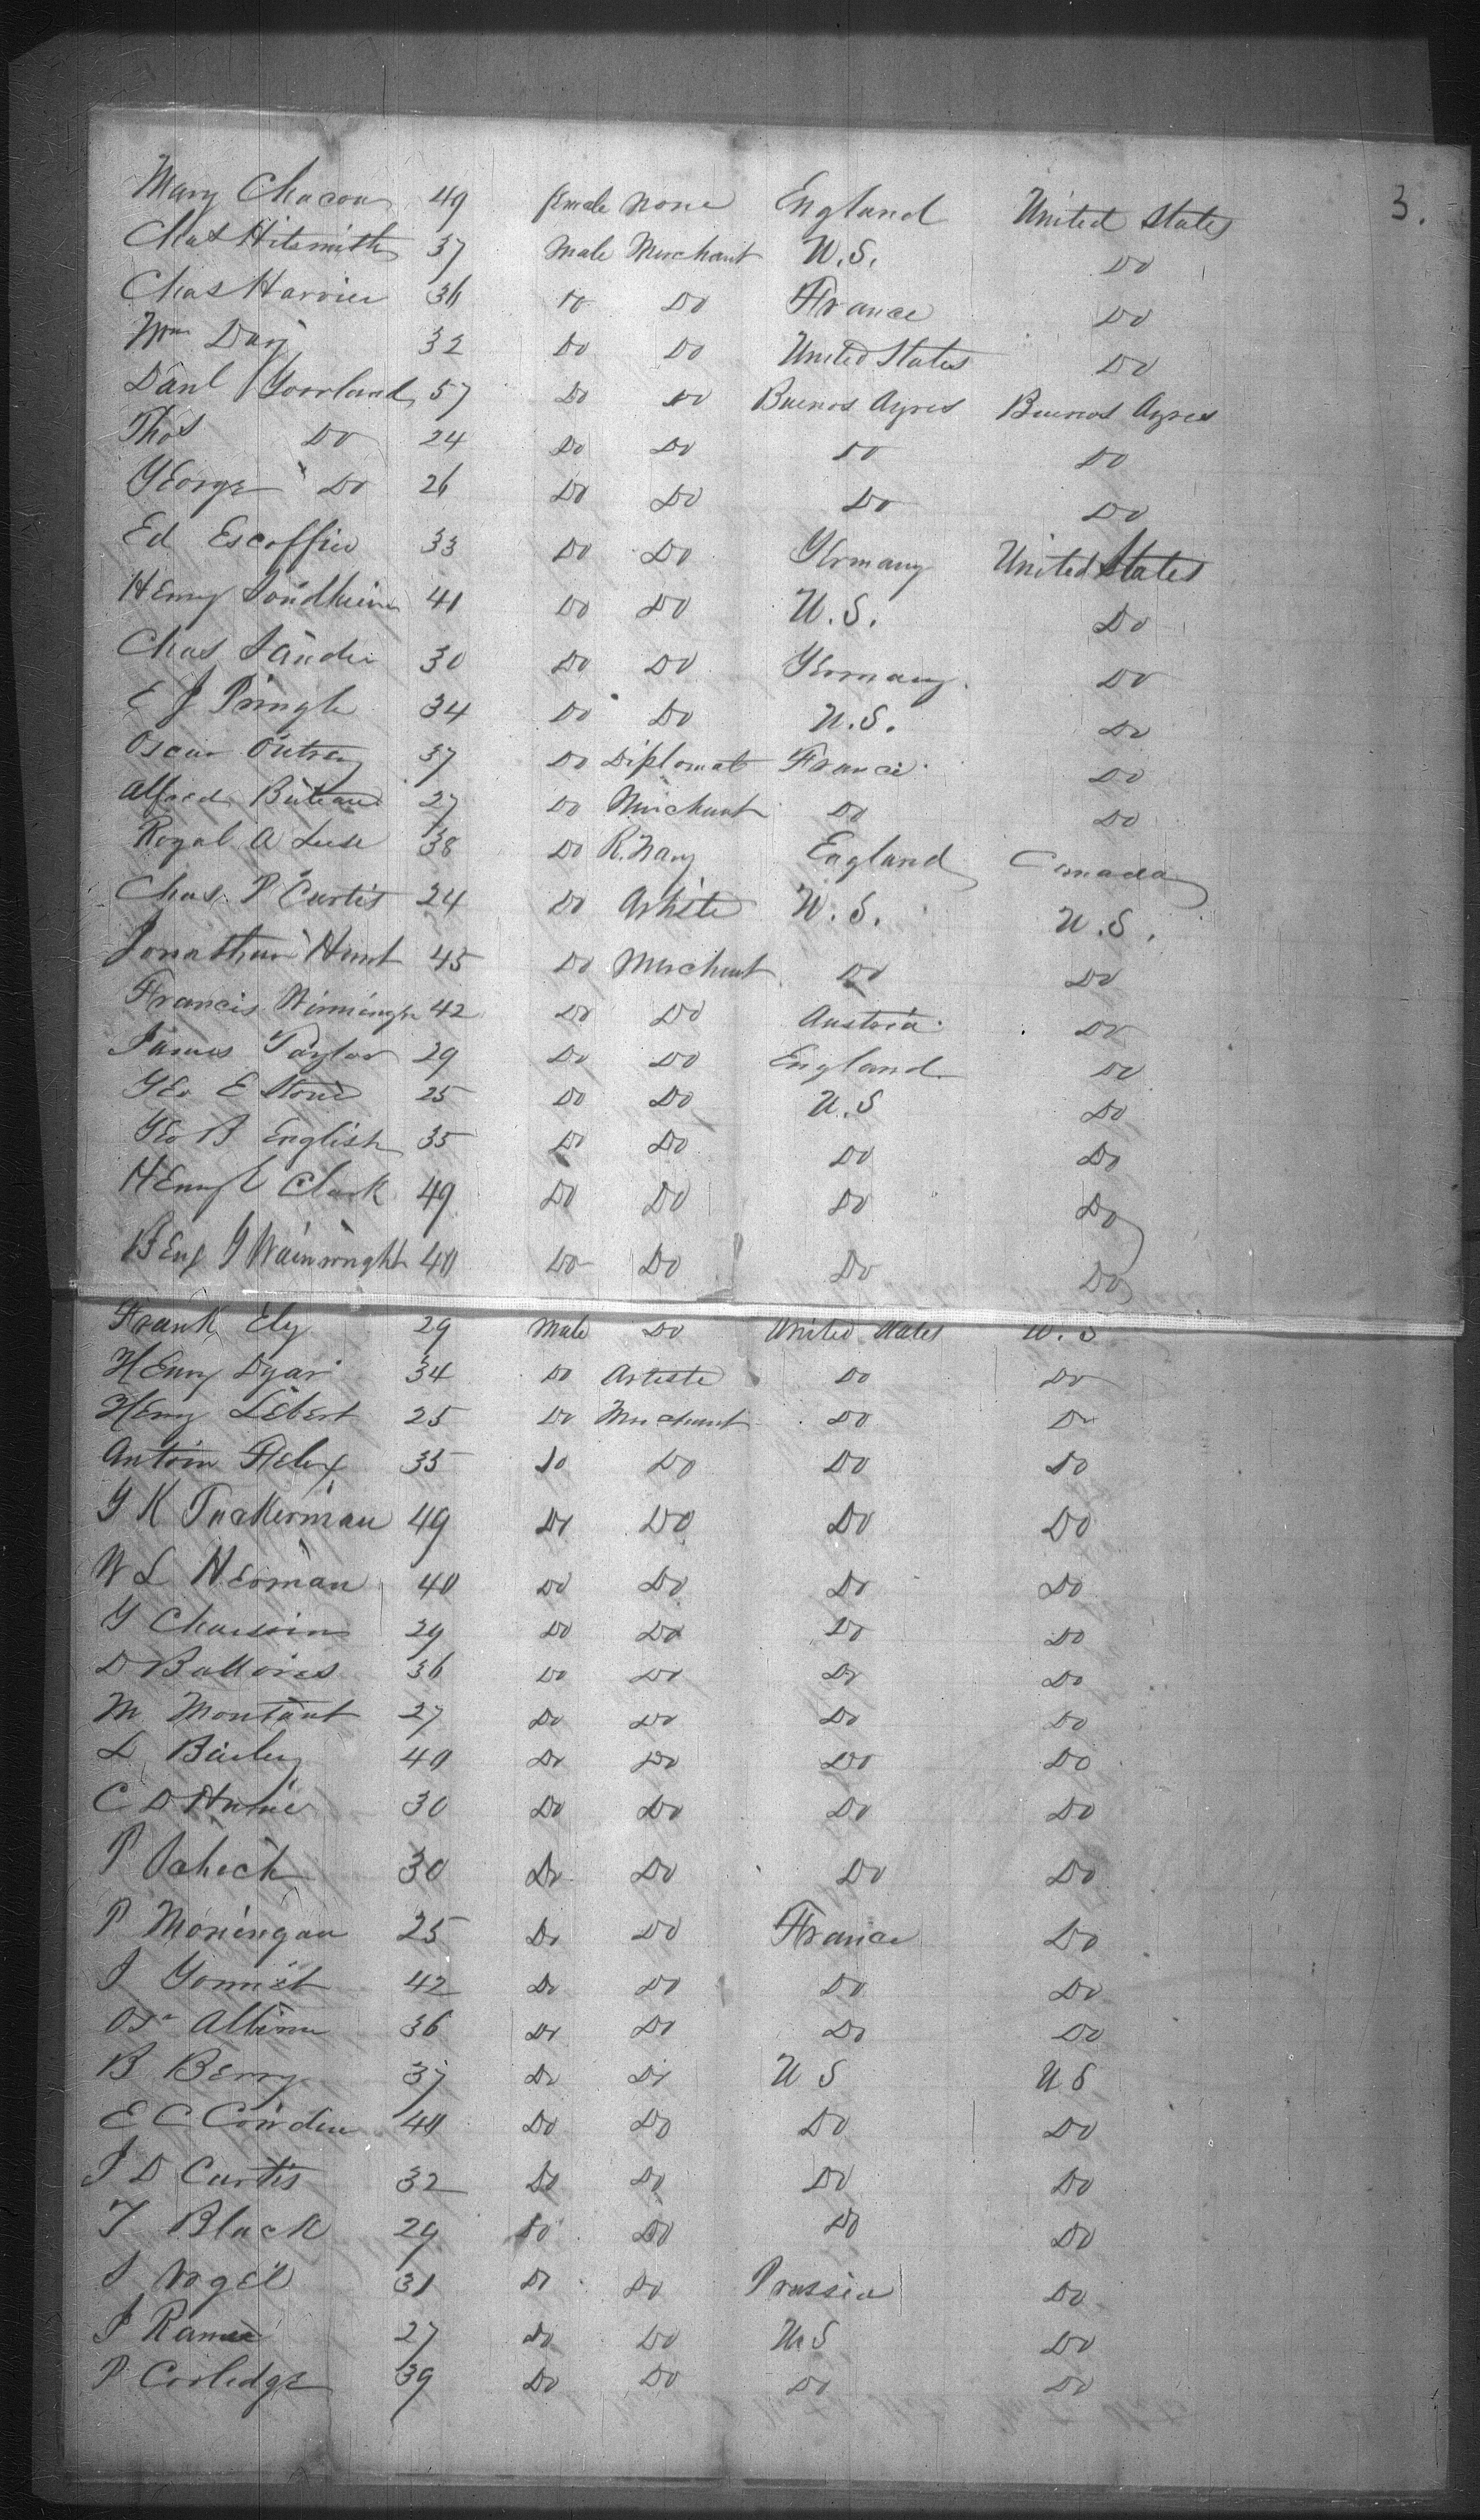 3.
Mary Chacon 49 female None England United States
Chas Hitsmith 37 Male Merchant U.S. Do
Chas Harrier 36 Do Do France Do
Wm Day 32 Do Do United States Do
Danl Gowland 57 Do Do Buenos Ayres Buenos Ayres
Thos Do 24 Do Do Do Do
George Do 26 Do Do Do Do
Ed Escoffier 33 Do Do Germany United States
Henry Sondheim 41 Do Do U.S. Do
Chas Sander 30 Do Do Germany Do
E J Pringle 34 Do Do U.S. Do
Oscar Outrey 37 Do Diplomat France Do
Alfred 27 Do Merchant Do Do
Royal A Luse 38 Do R. Navy England Canada
Chas. P Curtis 24 Do Artiste U.S. U.S.
Jonathan Hunt 45 Do Merchant Do Do
Francis 42 Do Do Austria Do
James Taylor 29 Do Do England Do
Geo E Stone 25 Do Do U.S Do
Geo B English 35 Do Do Do Do
Henry L Clark 49 Do Do Do Do
Benj G Wainwright 40 Do Do Do Do
Frank Ely 29 Male Do United States U.S
Henry Dyar 34 Do Artiste Do Do
Henry Lebert 25 Do Merchant Do Do
Antoin Felix 35 Do Do Do Do
G K Tuckerman 49 Do Do Do Do
W L Herman 40 Do Do Do Do
G 29 Do Do Do Do
D 36 Do Do Do Do
M Montant 27 Do Do Do Do
L Bailey 40 Do Do Do Do
C D 30 Do Do Do Do
P Scheck 30 Do Do Do Do
P Moningau 25 Do Do France Do
J Gonnet 42 Do Do Do Do
36 Do Do Do Do
B Berry 37 Do Do U S U S
E C Cowden 40 Do Do Do Do
J D Curtis 32 Do Do Do Do
T Black 29 Do Do Do Do
S Vogel 31 Do Do Prussia Do
J Ramee 27 Do Do U.S Do
P Coolidge 39 Do Do Do Do